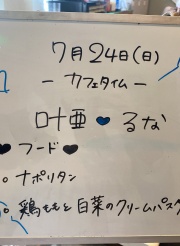 7月24日(日)
– カフェタイム –
叶亜♥るな
♥フード♥
○ナポリタン
○鶏ももと白菜のクリームパスタ